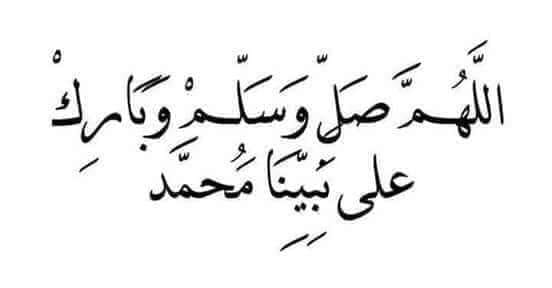 اللَّهُمَّ صَلِّ وَسَلِّمْ وَبَارِكْ
على نَبِيِّنَا مُحمَّد